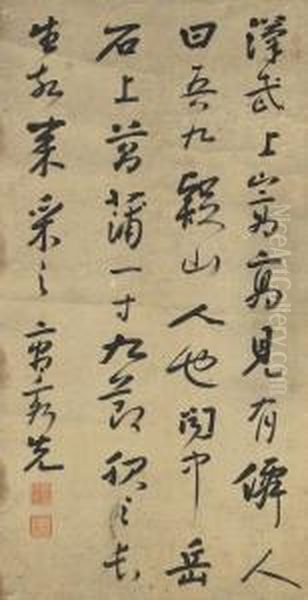 漢武上嵩高見有僊人
曰吾九疑山人也聞中岳
石上菖蒲一寸九節服之長
生故来采之 曹秀先